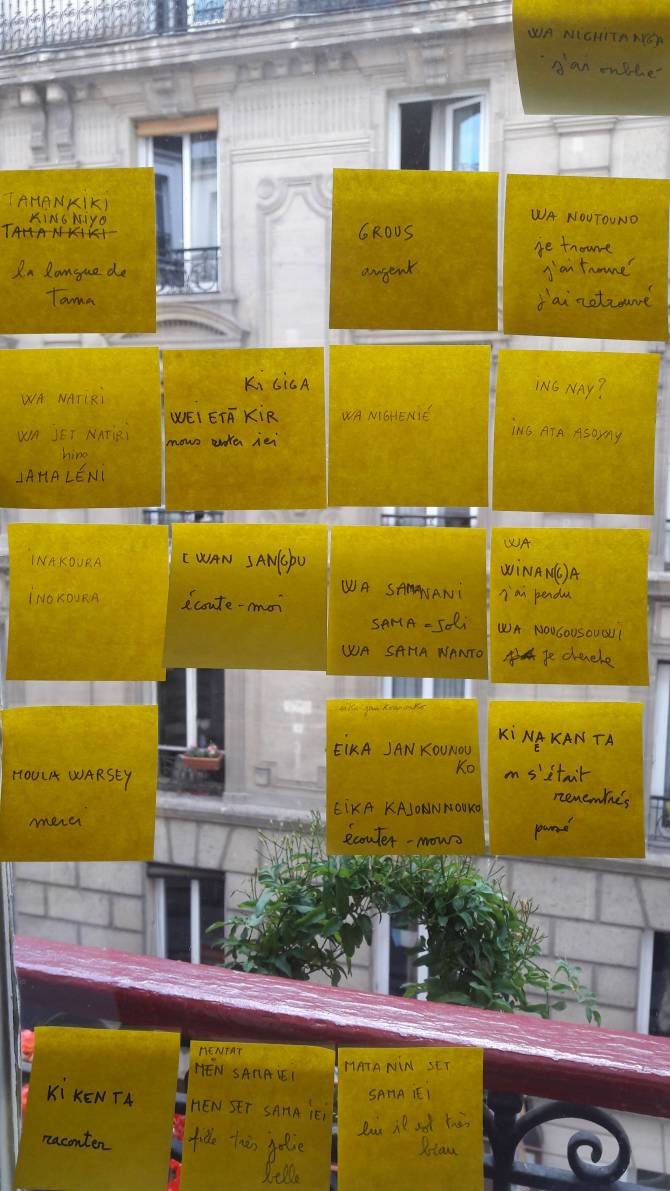 WA NIGHITANGA
j'ai oublié
TAMANKIKI
KINGNIYO
TAMANKIKI
la langue de
Tama
GROUS
argent
WA NOUTOUNO
je trouve
j'ai trouvé
j'ai retrouvé
WA NATIRI
WA JET NATIRI
hiro
JAMALÉNI
KI GIGA
WEI ETĀ KIR
nous rester ici
WA NIGHENIÉ
ING NAY?
ING ATA ASOYAY
INAKOURA
INOKOURA
WAN JAN(G)OU
écoute-moi
WA SAMANANI
SAMA = Joli
WA SAMA NANTO
WA
WINAN(G)A
j'ai perdu
WA NOUGOUSOUGUI
je cherche
MOULA WARSEY
merci
EIKA JAN KOUNOU
KO
EIKA KAJONNNOUKO
écoutez-nous
KI NAKAN TA
E
on s'était
rencontrés
passé
KI KEN TA
raconter
MENTAT
MEN SAMA IEI
MEN SET SAMA IEI
fille très jolie
belle
MATANIN SET
SAMA IEI
lui il est très
beau